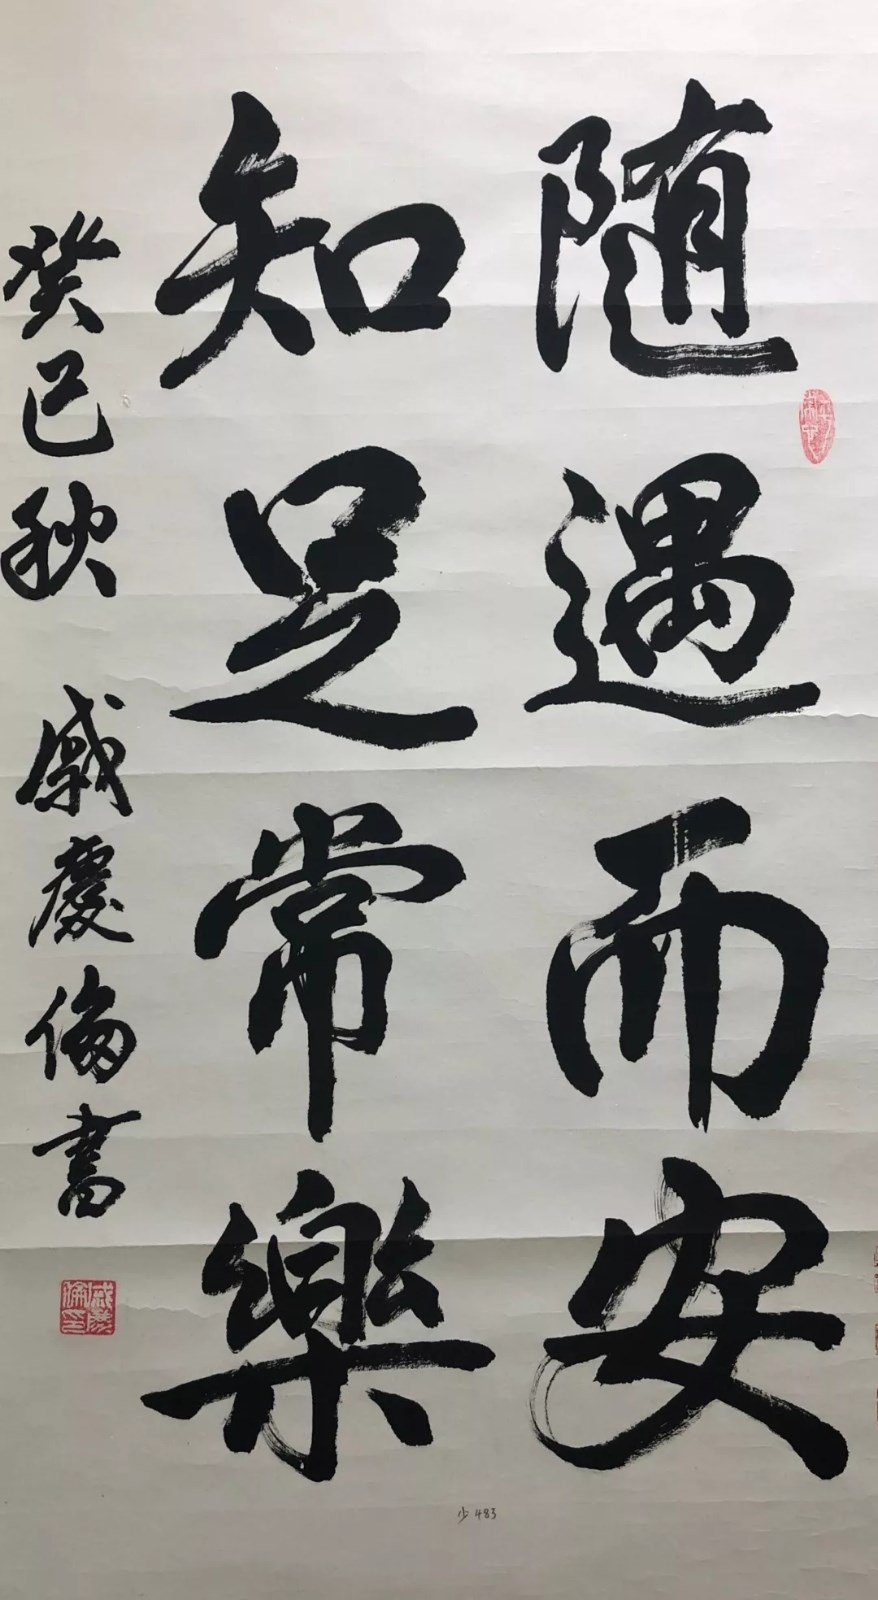 随遇而安
知足常樂
癸巳秋 戚慶倫書
少 483